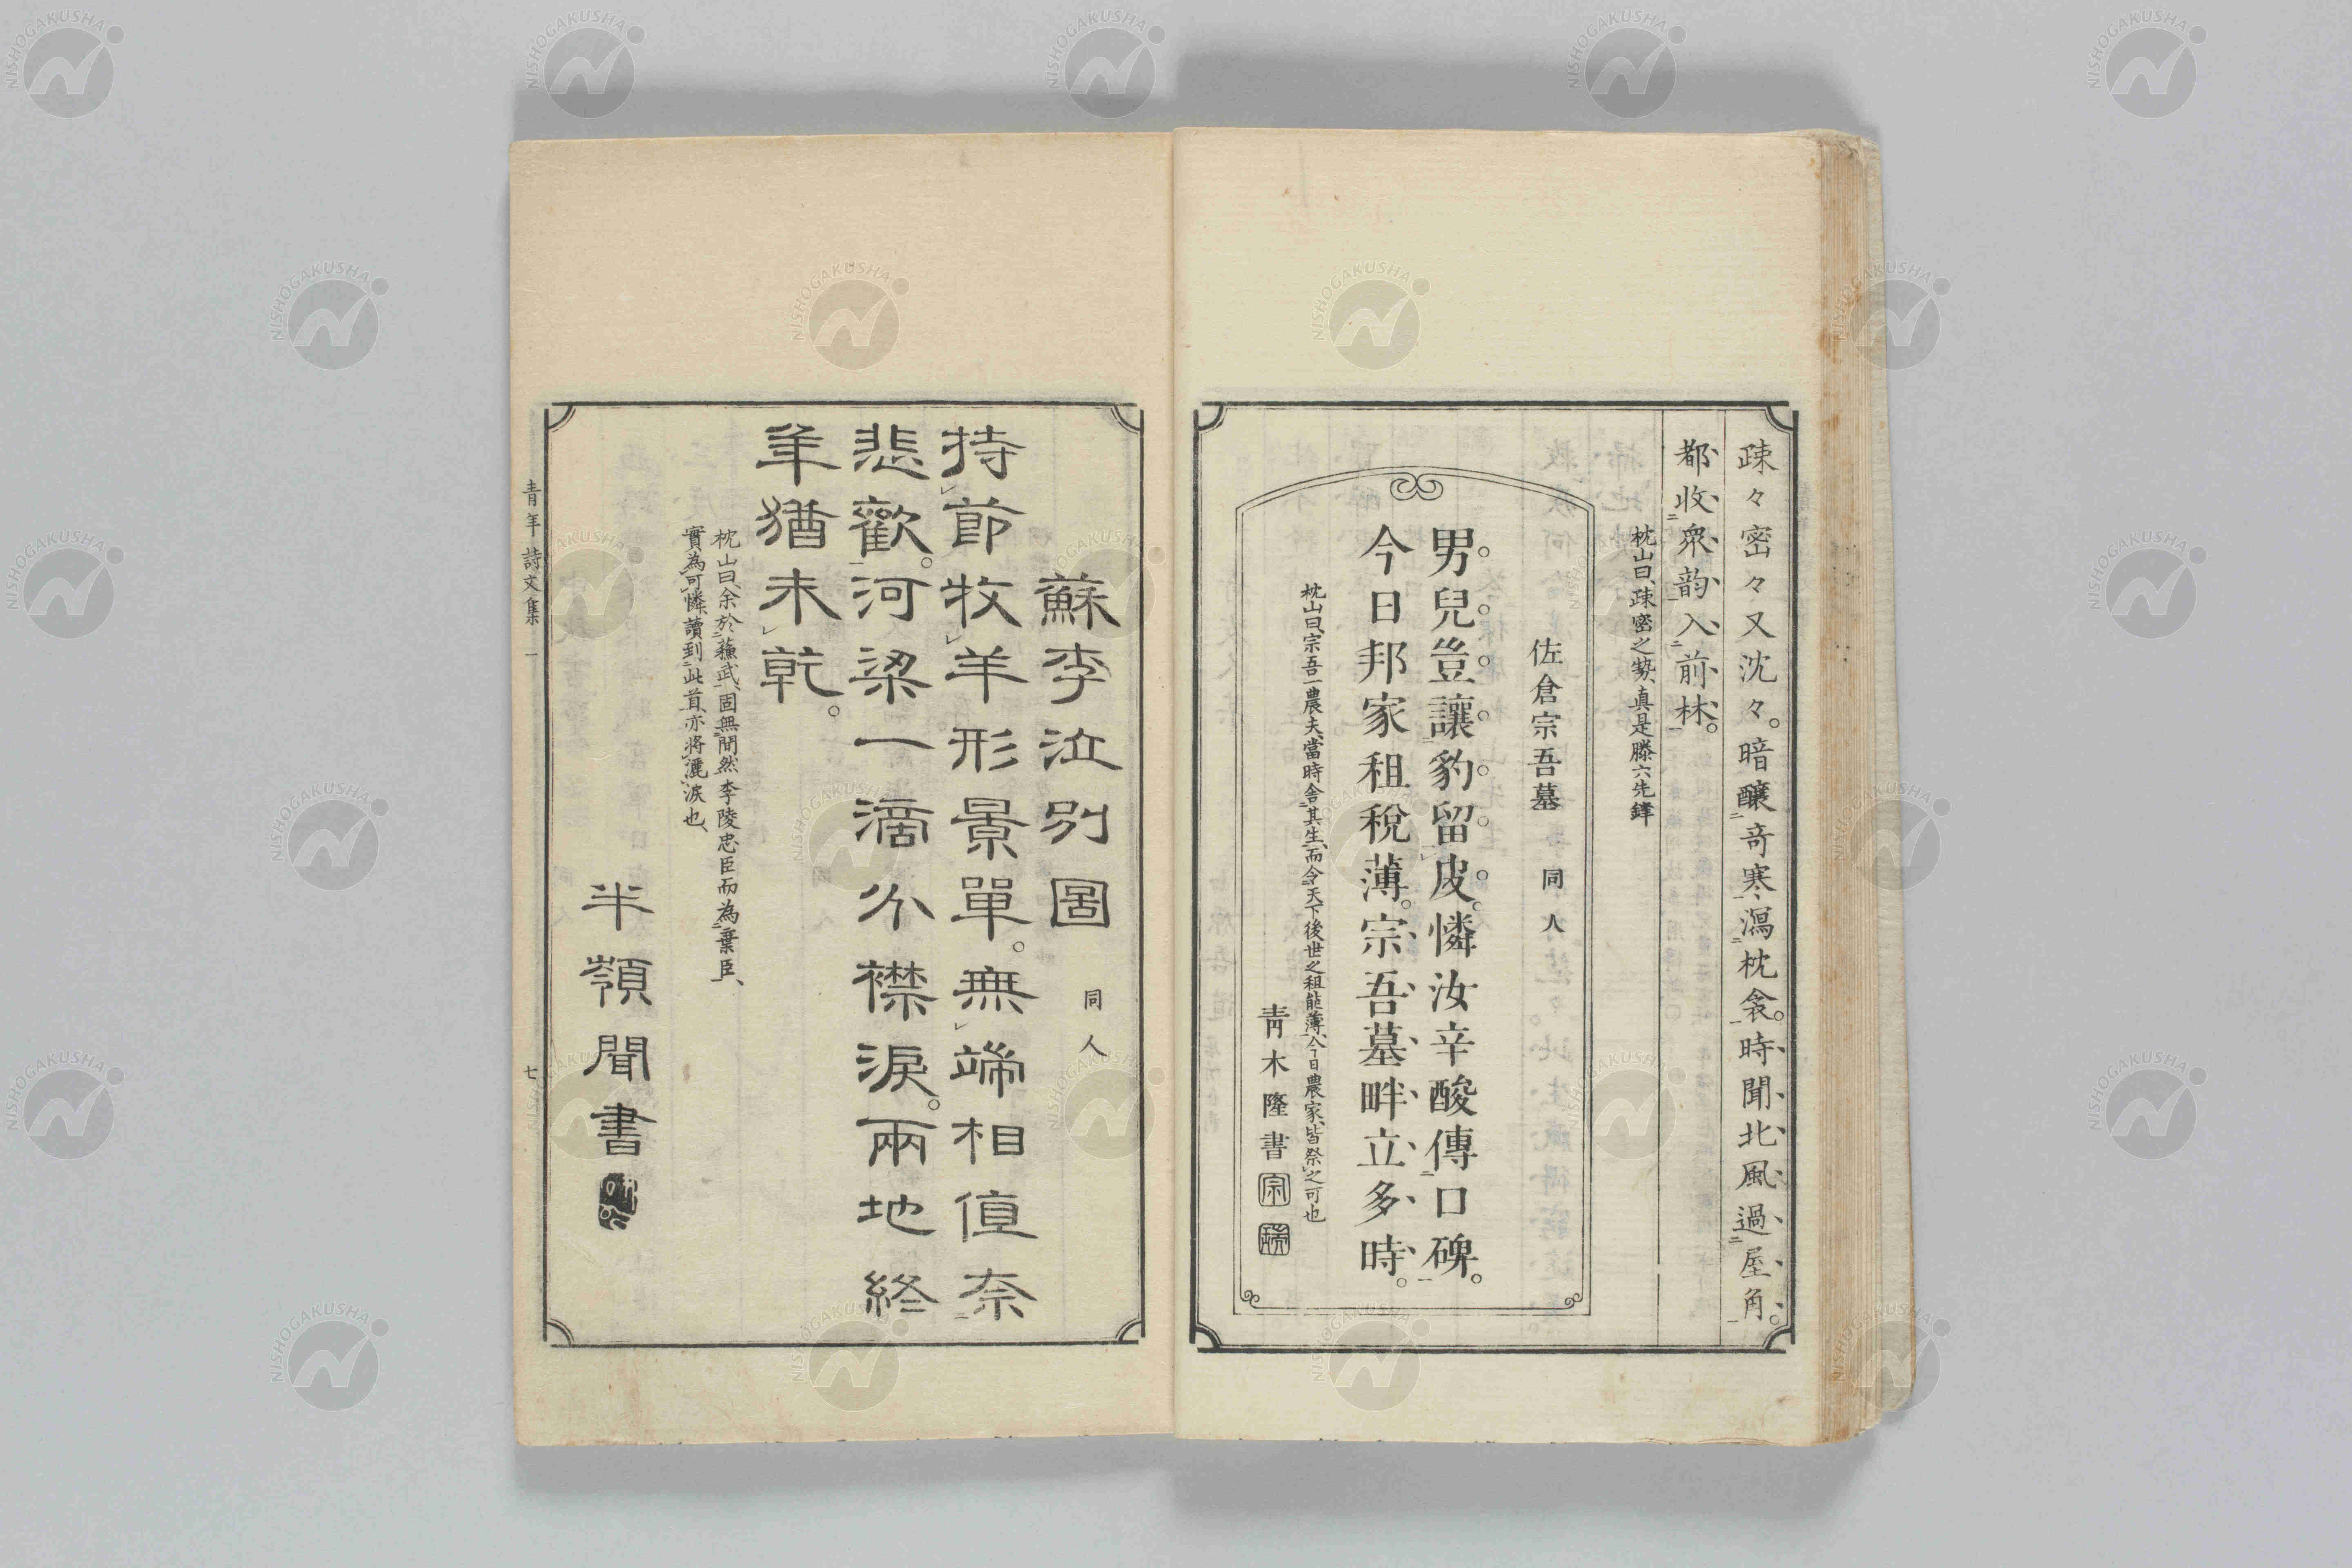 疎々密々又沈々。暗釀奇寒瀉枕衾。時聞北風過屋角。
都收衆韵入前林。
枕山曰、疎密之勢、真是滕六先鋒
佐倉宗吾墓 同人
男兒豈讓豹留皮。憐汝辛酸傳口碑。
今日邦家租稅薄。宗吾墓畔立多時。
枕山曰、宗吾一農夫、當時舍其生、而令天下後世之租能薄、今日農家、皆祭之可也
青木隆書
蘇李泣別圖 同人
持節牧羊形景單。無端相値奈
悲歡。河梁一滴分襟淚。兩地終
年猶未乾。
枕山曰、余於蘇武、固無間然、李陵忠臣而為棄臣、
實為可憐、讀到此首、亦將灑淚也、
半嶺聞書
青年詩文集 一 七
NISHOGAKUSHA